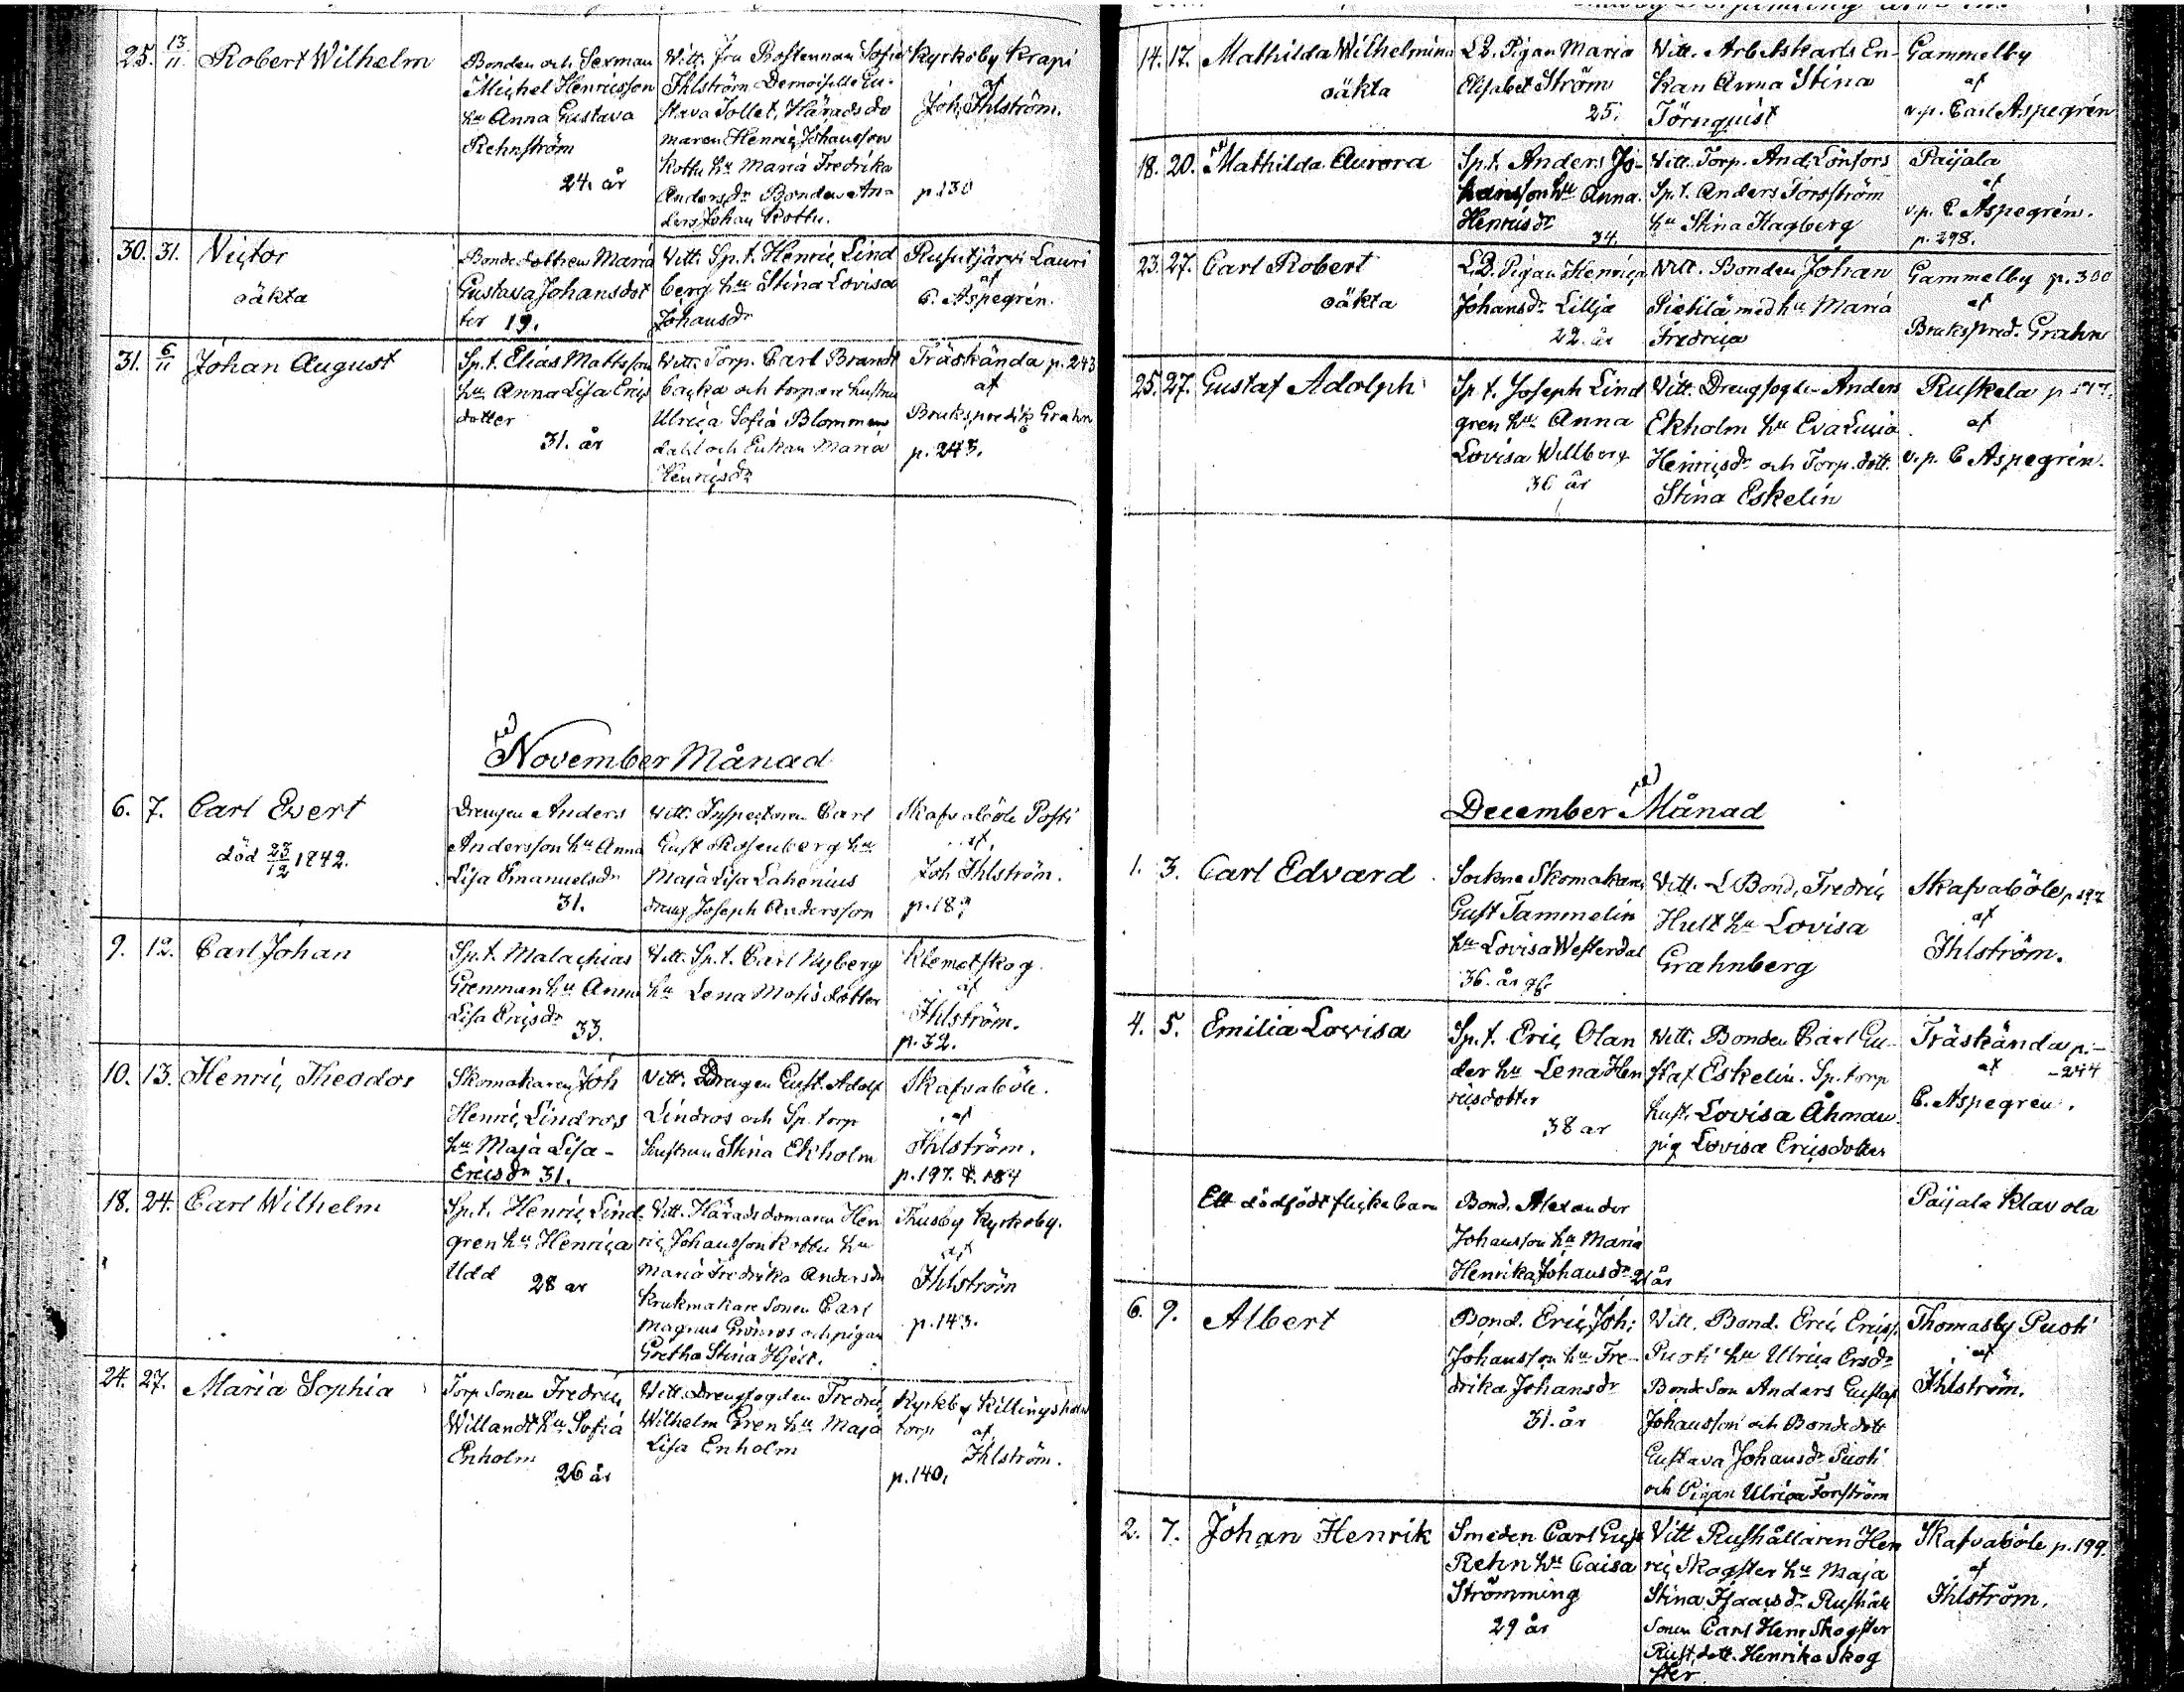 25. 13/11 Robert Wilhelm
Bonden och Sexman
Michel Henricsson
hu Anna Gustava
Rehnström
24. år
Vitt. Fru Bostennan Sofia
Ihlström Demoiselle Gu-
stava Tollet, Härads do
maren Henric Johansson
Rottu hu Maria Fredrika
Andersdr Bonden An-
ders Johan Rottu.
Kyrkoby Krapi
af
Joh. Ihlström.
p.130
30. 31. Victor
oäkta
Bonde dottren Maria
Gustava Johansdot
ter 19.
Vitt. Sp.t. Henric Lind
berg hu Stina Lovisa
Johansdr
Rusutjärvi Lauri
af
C. Aspegrén.
31. 6/11 Johan August
Sp.t. Elias Mattsson
hu Anna Lisa Erics
dotter
31. år
Vitt. Torp. Carl Brandt
backa och torpare hustrun
Ulrica Sofia Blommen
dahl och Enkan Maria
Henricsdr
Träskända p.243
af
Brukspredik Grahn
p.243.
November Månad
6. 7. Carl Evert
död 23/12 1842.
Drengen Anders
Andersson hu Anna
Lisa Emanuelsdr
31.
Vitt. Inspectoren Carl
Gust Rosenberg hu
Maja Lisa Lahenius
dreng Joseph Andersson
Skafvaböle Posti
af
Joh Ihlström.
p.189
9. 12. Carl Johan
Sp.t. Malachias
Grenman hu Anna
Lisa Ericsdr
33.
Vitt. Sp.t. Carl Nyberg
hu Lena Mosisdotter
Klemetskog.
af
Ihlström.
p.32.
10. 13. Henric Theodor
Skomakaren Joh
Henric Lindros
hu Maja Lisa -
Ericsdr 31.
Vitt. Drengen Gust. Adolf
Lindros och Sp. torp
hustrun Stina Ekholm
Skafvaböle.
af
Ihlström.
p.197. & 184
18. 24. Carl Wilhelm
Sp.t. Henric Lind
gren hu Henrica
Udd 28 år
Vitt. Häradsdomaren Hen
ric Johansson Rottu hu
Maria Fredrika Andersdr
Krukmakare Sonen Carl
Magnus Grönros och pigan
Gretha Stina Hjelt.
Thusby Kyrkoby.
af
Ihlström
p.143.
24. 27. Maria Sophia
Torp Sonen Fredric
Willandt hu Sofia
Enholm
26 år
Vitt. Drengfogden Fredric
Wilhelm Gren hu Maja
Lisa Enholm
Kyrkby Killingsholm
torp af
Ihlström.
p.140.
14. 17. Mathilda Wilhelmina
oäkta
L.B. Pigan Maria
Elisabet Ström
25.
Vitt. Arbetskarls En-
kan Anna Stina
Törnquist
Gammelby
af
v.p. Carl Aspegrén
18. 20. Mathilda Aurora
Sp.t. Anders Jo-
hansson hu Anna
Henricsdr
34.
Vitt. Torp. And. Lönfors
Sp.t. Anders Forsström
hu Stina Hagberg
Paijala
af
v.p. C Aspegrén.
p.298.
23. 27. Carl Robert
oäkta
L.B. Pigan Henrica
Johansdr Lillja
22. år
Vitt. Bonden Johan
Pickilä med hu Maria
Fredrica
Gammelby p.300
af
Brukspred. Grahn
25. 27. Gustaf Adolph
Sp.t. Joseph Lind
gren hu Anna
Lovisa Willberg
36 år
Vitt. Drengfogden Anders
Ekholm hu Eva Lucia
Henricsdr och Torp. dott.
Stina Eskelin
Ruskela
af
v.p. C Aspegrén.
December Månad
1. 3. Carl Edvard
Sockne Skomakaren
Gust Tammelin
hu Lovisa Westerdal
36. år
Vitt. L Bond. Fredric
Hult hu Lovisa
Grahnberg
Skafvaböle p.192
af
Ihlström.
4. 5. Emilia Lovisa
Sp.t. Eric Olan
der hu Lena Hen
ricsdotter
38 år
Vitt. Bonden Carl Gu-
staf Eskelin. Sp.torp
hust. Lovisa Åhman
pig Lovisa Ericsdotter
Träskända p.-
af -244
C. Aspegren.
Ett dödfödt flicka barn
Bond. Alexander
Johansson hu Maria
Henrika Johansdr 21 år
Paijala Klavola
6. 9. Albert
Bond. Eric Joh:
Johansson hu Fre-
drika Johansdr
31. år
Vitt. Bond. Eric Ericss.
Puoti hu Ulrica Ersdr
Bonde Son Anders Gustaf
Johansson och Bondedott
Gustava Johansdr Puoti
och Pigan Ulrica Forsström
Thomasby Puoti
af
Ihlström.
2. 7. Johan Henrik
Smeden Carl Gust
Rehn hu Caisa
Strömming
29 år
Vitt Rusthållaren Hen
ric Skogster hu Maja
Stina Isaacsdr Rusthåll
Sonen Carl Henr Skogster
Rust. dott. Henrika Skog
ster
Skafvaböle p.199.
af
Ihlström.